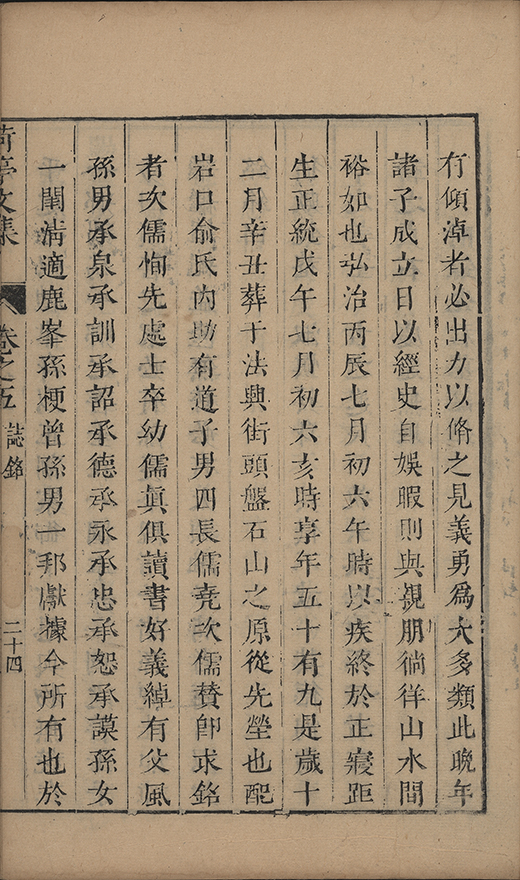 有傾淖者必出力以脩之見義勇為大多類此晚年
諸子成立日以經史自娛暇則與親朋徜徉山水間
裕如也弘治丙辰七月初六午時以疾終於正寢距
生正統戊午七月初六亥時享年五十有九是歲十
二月辛丑葬于法興街頭盤石山之原從先塋也配
岩口俞氏內助有道子男四長儒堯次儒贊即求銘
者次儒恂先處士卒幼儒眞俱讀書好義綽有父風
孫男承泉承訓承詔承德承永承忠承恕承謨孫女
一閨淸適鹿峯孫梗曾孫男一邦獻據今所有也於
荷亭文集
卷之五
誌銘
二十四